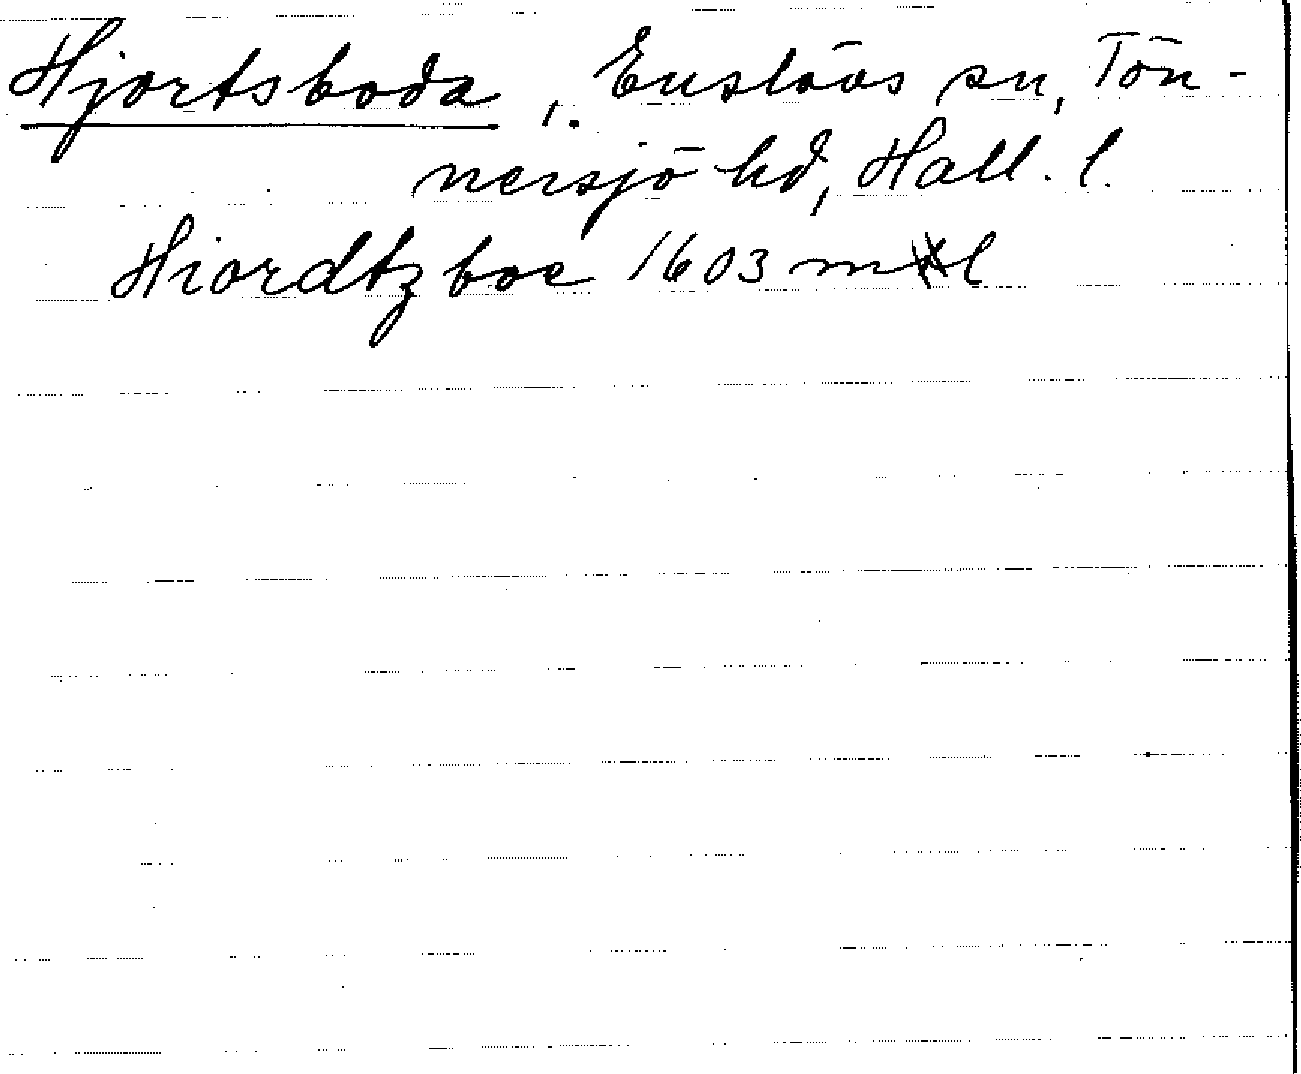 Hjortsboda, i. Enslövs sn, Tön-
nersjö hd, Hall. l.
Hiordtzboe 1603 ml